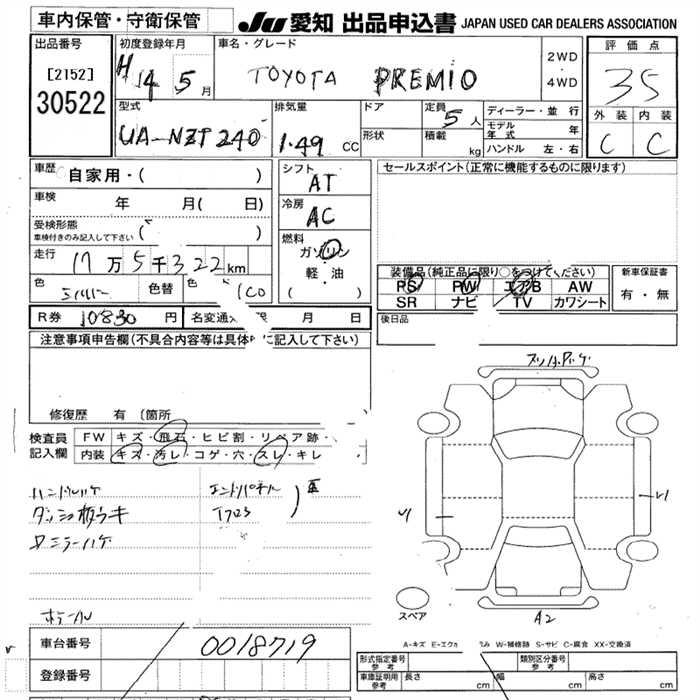 車内保管・守衛保管
JU 愛知 出品申込書 JAPAN USED CAR DEALERS ASSOCIATION
出品番号
[2152]
30522
初度登録年月
H 14 5 月
車名・グレード
TOYOTA PREMIO
2WD
・
4WD
評価点
3.5
外装 内装
C C
型式
UA-NZT240
排気量
1.49 CC
ドア
形状
定員
5 人
積載
kg
ディーラー・並行
モデル年式 年
ハンドル 左・右
車歴
自家用・( )
車検
年 月( 日)
受検形態
車検付きのみ記入して下さい
( )
走行
17万5千322km
色
シルバー
色替
色
1C0
シフト
AT
冷房
AC
燃料
ガソリン
軽・油
( )
セールスポイント(正常に機能するものに限ります)
装備品(純正品に限り○をつけてください)
PS PW エアB AW
SR ナビ TV カワシート
新車保証書
有・無
R券 10830 円
名変通 月 日
後日品
注意事項申告欄(不具合内容等は具体的に記入して下さい)
修復歴 有 (箇所
検査員
記入欄
FW キズ・飛石・ヒビ割・リペア跡・
内装 キズ・汚レ・コゲ・穴・スレ・キレ
ハンドルハゲ
ダッシュ板ウキ
エンドパネル
スペア
A2
車台番号
0018719
登録番号
A-キズ E-エクボ W-補修跡 S-サビ C-腐食 XX-交換済
形式指定番号
参考
類別区分番号
参考
車庫証明用
参考
長さ cm
幅 cm
高さ cm